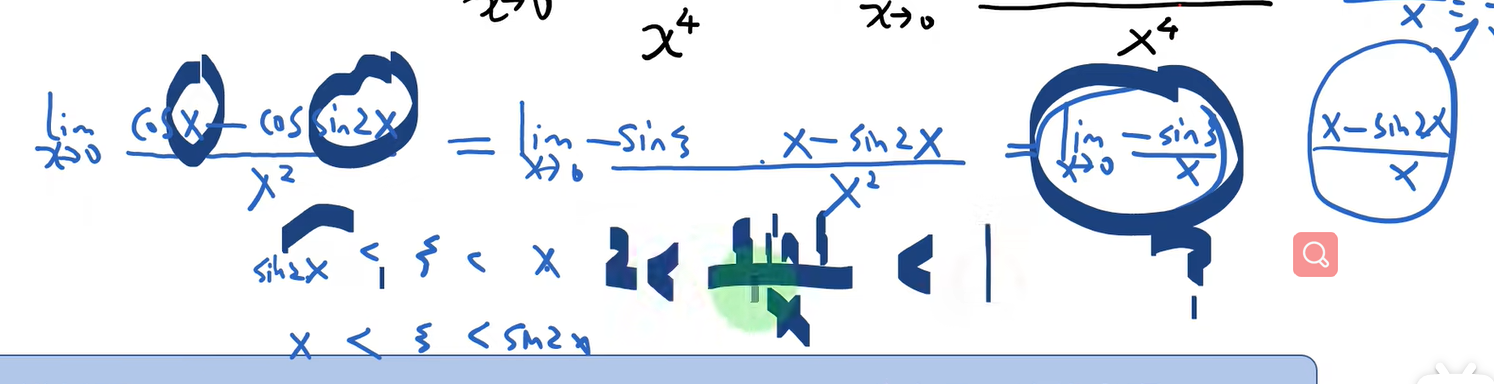 x→0 x⁴ x→0 x⁴ x
lim x→0 (cos x − cos sin2x)/x² = lim x→0 −sin ξ · (x − sin2x)/x² = lim x→0 (−sin ξ)/x (x − sin2x)/x
sin2x < ξ < x 2 < sin ξ / x < 1 ?
x < ξ < sin2x